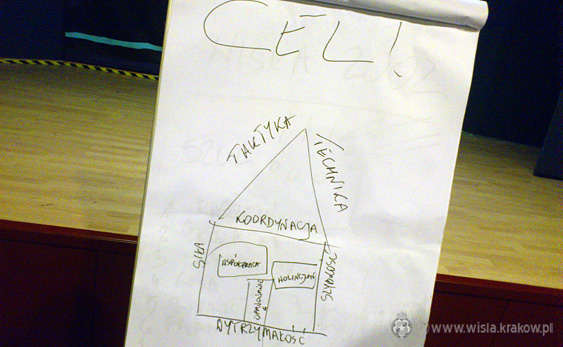 CEL!
TAKTYKA
TECHNIKA
KOORDYNACJA
SIŁA
WSPÓŁPRACA
SZYBKOŚĆ
WYTRZYMAŁOŚĆ
©www.wisla.krakow.pl